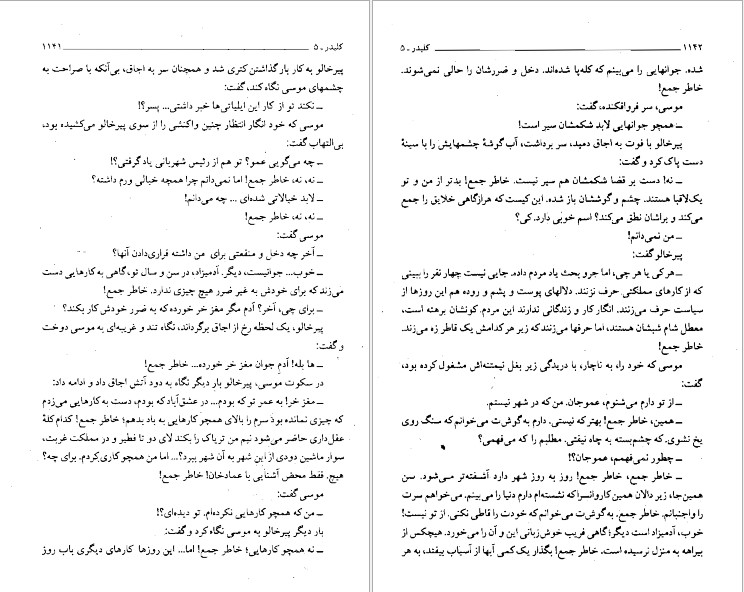 کلیدر ـ ۵ ۱۱۴۱
پیرخالو به کار بار گذاشتن کتری شد و همچنان سر به اجاق، بی‌آنکه با صراحت به
چشمهای موسی نگاه کند، گفت:
ـ نکند تو از کار این ایلیاتی‌ها خبر داشتی... پسر؟!
موسی که خود انگار انتظار چنین واکنشی را از سوی پیرخالو می‌کشیده بود،
بی‌التهاب گفت:
ـ چه می‌گویی عمو؟ تو هم از رئیس شهربانی یاد گرفتی؟!
ـ نه، نه، خاطر جمع! اما نمی‌دانم چرا همچه خیالی ورم داشته؟
ـ لابد خیالاتی شده‌ای ... چه می‌دانم!
ـ نه، نه، خاطر جمع!
موسی گفت:
ـ آخر چه دخل و منفعتی برای من داشته فراری‌دادن آنها؟
ـ خوب... جوانیست، دیگر. آدمیزاد، در سن و سال تو، گاهی به کارهایی دست
می‌زند که برای خودش به غیر ضرر هیچ چیزی ندارد. خاطر جمع!
ـ برای چی، آخر؟ آدم مگر مغز خر خورده که به ضرر خودش کار بکند؟
پیرخالو، یک لحظه رخ از اجاق برگرداند، نگاه تند و غریبه‌ای به موسی دوخت
و گفت:
ـ ها بله! آدم جوان مغز خر خورده... خاطر جمع!
در سکوت موسی، پیرخالو بار دیگر نگاه به دود آتش اجاق داد و ادامه داد:
ـ مغز خر! به عمر تو که بودم... در عشق‌آباد که بودم، دست به کارهایی می‌زدم
که چیزی نمانده بود سرم را بالای همچو کارهایی به باد بدهم؛ خاطر جمع! کدام کلهٔ
عقل‌داری حاضر می‌شود نیم من تریاک را بکند لای دو تا فطیر و در مملکت غربت،
سوار ماشین دودی از این شهر به آن شهر ببرد؟... اما من همچو کاری کردم. برای چه؟
هیچ. فقط محض آشنایی با عمادخان! خاطر جمع!
موسی گفت:
ـ من که همچو کارهایی نکرده‌ام. تو دیده‌ای؟!
بار دیگر پیرخالو به موسی نگاه کرد و گفت:
ـ نه همچو کارهایی؛ خاطر جمع! اما... این روزها کارهای دیگری باب روز
۱۱۴۲ کلیدر ـ ۵
شده. جوانهایی را می‌بینم که کله‌پا شده‌اند. دخل و ضررشان را حالی نمی‌شوند.
خاطر جمع!
موسی، سر فروافکنده، گفت:
ـ همچو جوانهایی لابد شکمشان سیر است!
پیرخالو با فوت به اجاق دمید، سر برداشت، آب گوشهٔ چشمهایش را با سینهٔ
دست پاک کرد و گفت:
ـ نه! دست بر قضا شکمشان هم سیر نیست. خاطر جمع! بدتر از من و تو
یک‌لاقبا هستند. چشم و گوششان باز شده. این کیست که هرازگاهی خلایق را جمع
می‌کند و براشان نطق می‌کند؟ اسم خوبی دارد. کی؟
ـ من نمی‌دانم!
پیرخالو گفت:
ـ هر کی یا هر چی، اما جرو بحث یاد مردم داده. جایی نیست چهار نفر را ببینی
که از کارهای مملکتی حرف نزنند. دلالهای پوست و پشم و روده هم این روزها از
سیاست حرف می‌زنند. انگار کار و زندگانی ندارند این مردم. کونشان برهنه است،
معطل شام شبشان هستند، اما حرفها می‌زنند که زیر هر کدامش یک قاطر زه می‌زند.
خاطر جمع!
موسی که خود را، به ناچار، با دریدگی زیر بغل نیمتنه‌اش مشغول کرده بود،
گفت:
ـ از تو دارم می‌شنوم، عموجان. من که در شهر نیستم.
ـ همین، خاطر جمع! بهتر که نیستی. دارم به گوش‌ت می‌خوانم که سنگ روی
یخ نشوی. که چشم‌بسته به چاه نیفتی. مطلبم را که می‌فهمی؟
ـ چطور نمی‌فهمم، عموجان؟!
ـ خاطر جمع، خاطر جمع! روز به روز شهر دارد آشفته‌تر می‌شود. من
همین‌جا، زیر دالان همین کاروانسرا که نشسته‌ام دارم دنیا را می‌بینم. می‌خواهم سرت
را واجنبانم. خاطر جمع. به گوش‌ت می‌خوانم که خودت را قاطی نکنی. از تو نیست!
خوب، آدمیزاد است دیگر؛ گاهی فریب خوش‌زبانی این و آن را می‌خورد. هیچکس از
بیراهه به منزل نرسیده است. خاطر جمع! بگذار یک کمی آبها از آسیاب بیفتد، به هر